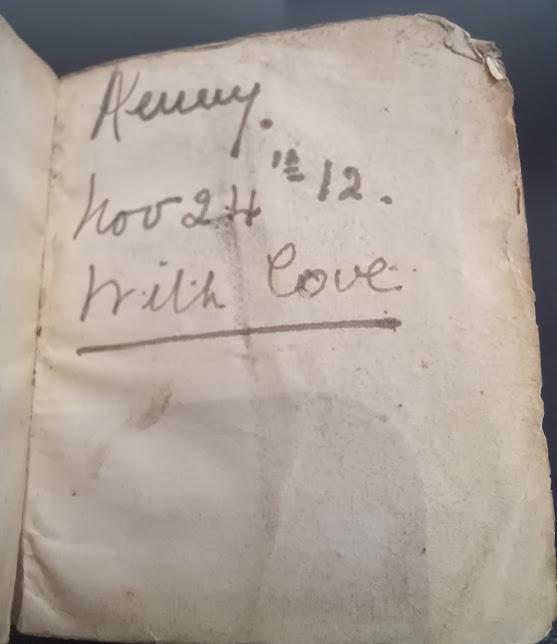 Kenny.
Nov 24th 12.
With love